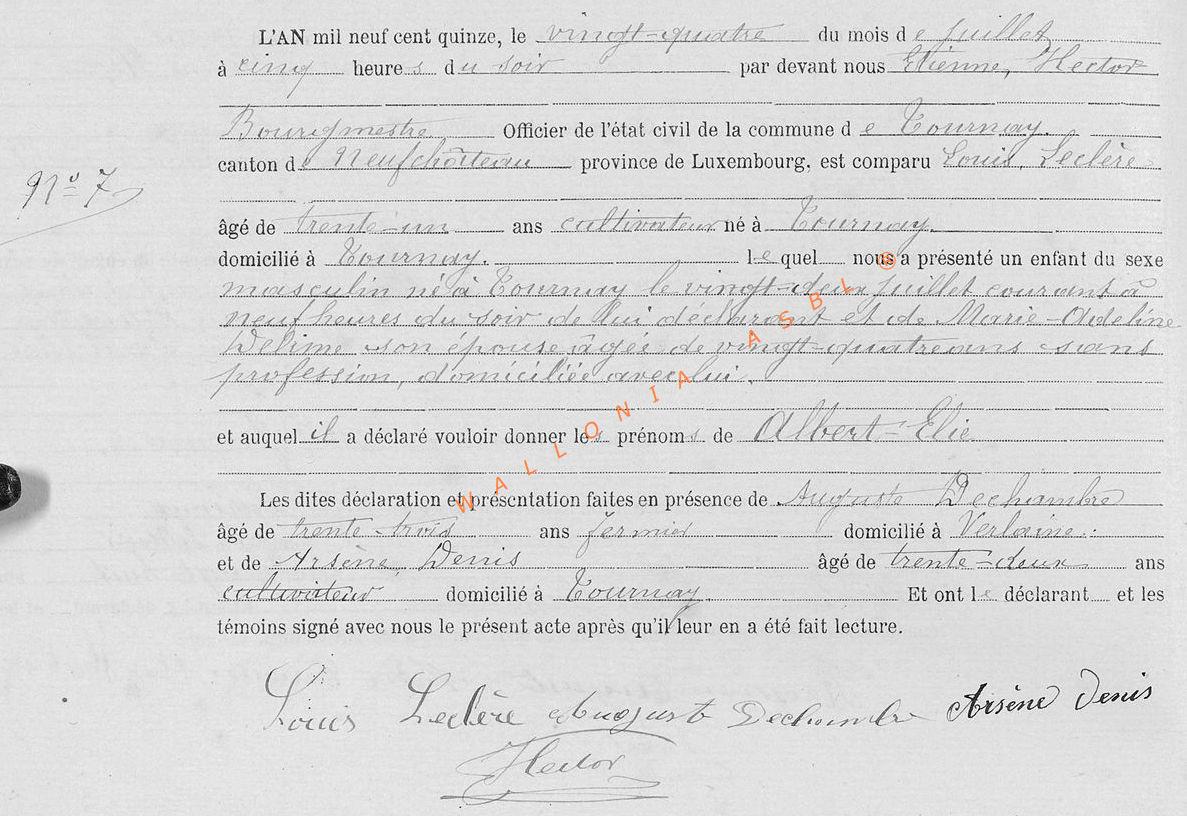 L'AN mil neuf cent quinze, le vingt-quatre du mois de juillet
à cinq heures du soir par devant nous Etienne, Hector
Bourgmestre Officier de l'état civil de la commune de Tournay.
canton de Neufchâteau province de Luxembourg, est comparu Louis, Leclère
N° 7
âgé de trente-un ans cultivateur né à Tournay.
domicilié à Tournay. lequel nous a présenté un enfant du sexe
masculin né à Tournay le vingt-deux juillet courant à
neuf heures du soir de lui déclarant et de Marie-Adeline
Delime son épouse âgée de vingt-quatre ans sans
profession, domiciliée avec lui.
et auquel il a déclaré vouloir donner les prénoms de Albert-Elie
Les dites déclaration et présentation faites en présence de Auguste Dechambre
âgé de trente-trois ans fermier domicilié à Verlaine.
et de Arsène, Denis âgé de trente-deux ans
cultivateur domicilié à Tournay. Et ont le déclarant et les
témoins signé avec nous le présent acte après qu'il leur en a été fait lecture.
Louis Leclère Auguste Dechambre Arsène Denis
Hector
WALLONIA ASBL ®